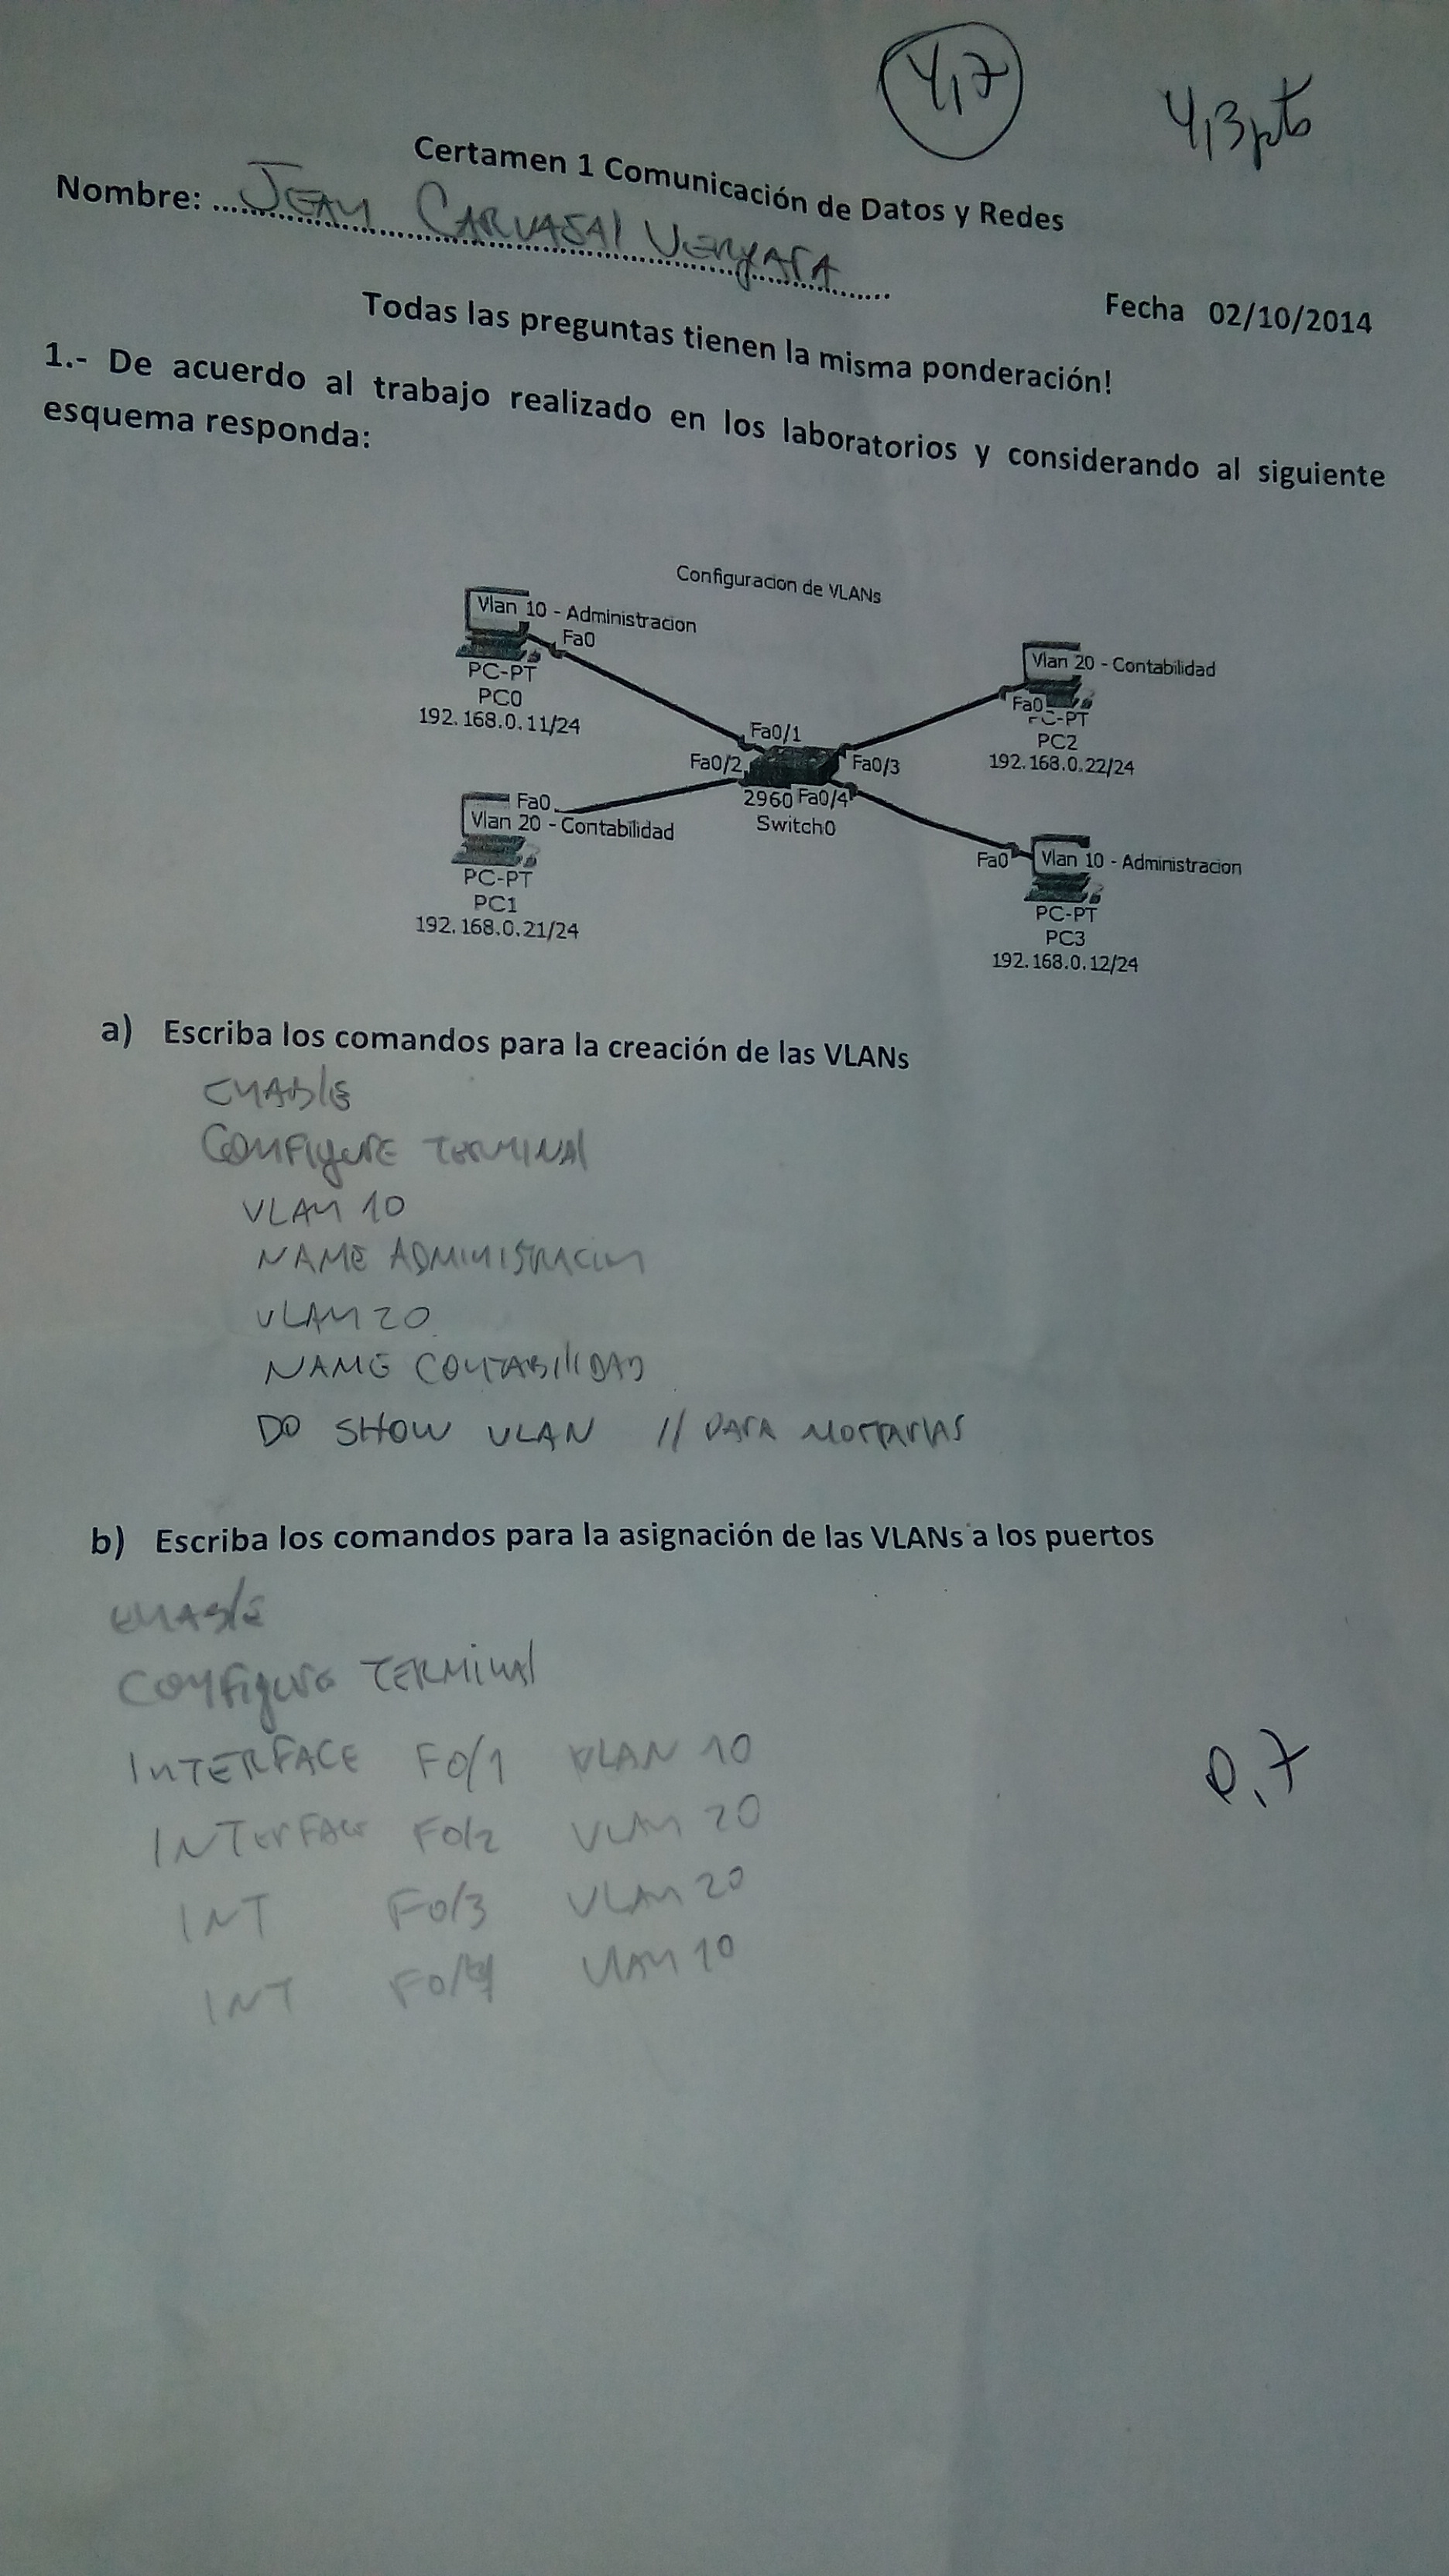 4,7
4,3 pts
Certamen 1 Comunicación de Datos y Redes
Nombre: JEAN CARVAJAL VERGARA
Fecha 02/10/2014
Todas las preguntas tienen la misma ponderación!
1.- De acuerdo al trabajo realizado en los laboratorios y considerando al siguiente
esquema responda:
Configuracion de VLANs
Vlan 10 - Administracion
Fa0
PC-PT
PC0
192.168.0.11/24
Vlan 20 - Contabilidad
Fa0
PC-PT
PC2
192.168.0.22/24
Fa0/1
Fa0/2
Fa0/3
2960 Fa0/4
Switch0
Fa0
Vlan 20 - Contabilidad
PC-PT
PC1
192.168.0.21/24
Fa0
Vlan 10 - Administracion
PC-PT
PC3
192.168.0.12/24
a) Escriba los comandos para la creación de las VLANs
ENABLE
CONFIGURE TERMINAL
VLAN 10
NAME ADMINISTRACION
VLAN 20
NAME CONTABILIDAD
DO SHOW VLAN // PARA MOSTRARLAS
b) Escriba los comandos para la asignación de las VLANs a los puertos
ENABLE
CONFIGURE TERMINAL
INTERFACE F0/1 VLAN 10
0,7
INTERFACE F0/2 VLAN 20
INT F0/3 VLAN 20
INT F0/4 VLAN 10